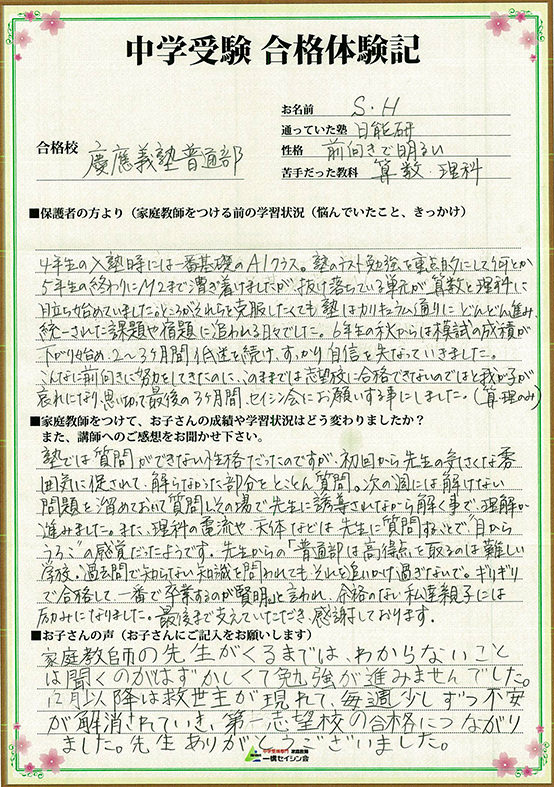 中学受験 合格体験記
お名前 S・H
通っていた塾 日能研
合格校 慶應義塾普通部
性格 前向きで明るい
苦手だった教科 算数・理科
■保護者の方より（家庭教師をつける前の学習状況（悩んでいたこと、きっかけ）
4年生の入塾時には一番基礎のA1クラス。塾のテスト勉強を重点的にして何とか
5年生の終わりにM2まで漕ぎ着けましたが、抜け落ちている単元が算数と理科に
目立ち始めていました。ところがそれらを克服したくても塾はカリキュラム通りにどんどん進み、
統一された課題や宿題に追われる日々でした。6年生の秋からは模試の成績が
下がり始め、2〜3ヶ月間低迷を続け、すっかり自信を失なっていきました。
こんなに前向きに努力をしてきたのに、このままでは志望校に合格できないのではと我が子が
哀れになり、思い切って最後の3ヶ月間、セイシン会にお願いする事にしました。(算・理のみ)
■家庭教師をつけて、お子さんの成績や学習状況はどう変わりましたか？
また、講師へのご感想をお聞かせ下さい。
塾では質問ができない性格だったのですが、初回から先生の気さくな雰
囲気に促されて、解らなかった部分をとことん質問。次の週には解けない
問題を溜めておいて質問しその場で先生に誘導されながら解く事で、理解が
進みました。また、理科の電流や、天体などは先生に質問することで"目から
うろこ"の感覚だったようです。先生からの「普通部は高得点を取るのは難しい
学校。過去問で知らない知識を問われても、それを追いかけ過ぎないで。ギリギリ
で合格して、一番で卒業するのが賢明」と言われ、余裕のない私達親子には
励みになりました。最後まで支えていただき、感謝しております。
■お子さんの声（お子さんにご記入をお願いします）
家庭教師の先生がくるまでは、わからないこと
は聞くのがはずかしくて勉強が進みませんでした。
12月以降は救世主が現れて、毎週少しずつ不安
が解消されていき、第一志望校の合格につながり
ました。先生ありがとうございました。
中学受験専門 家庭教師
一橋セイシン会